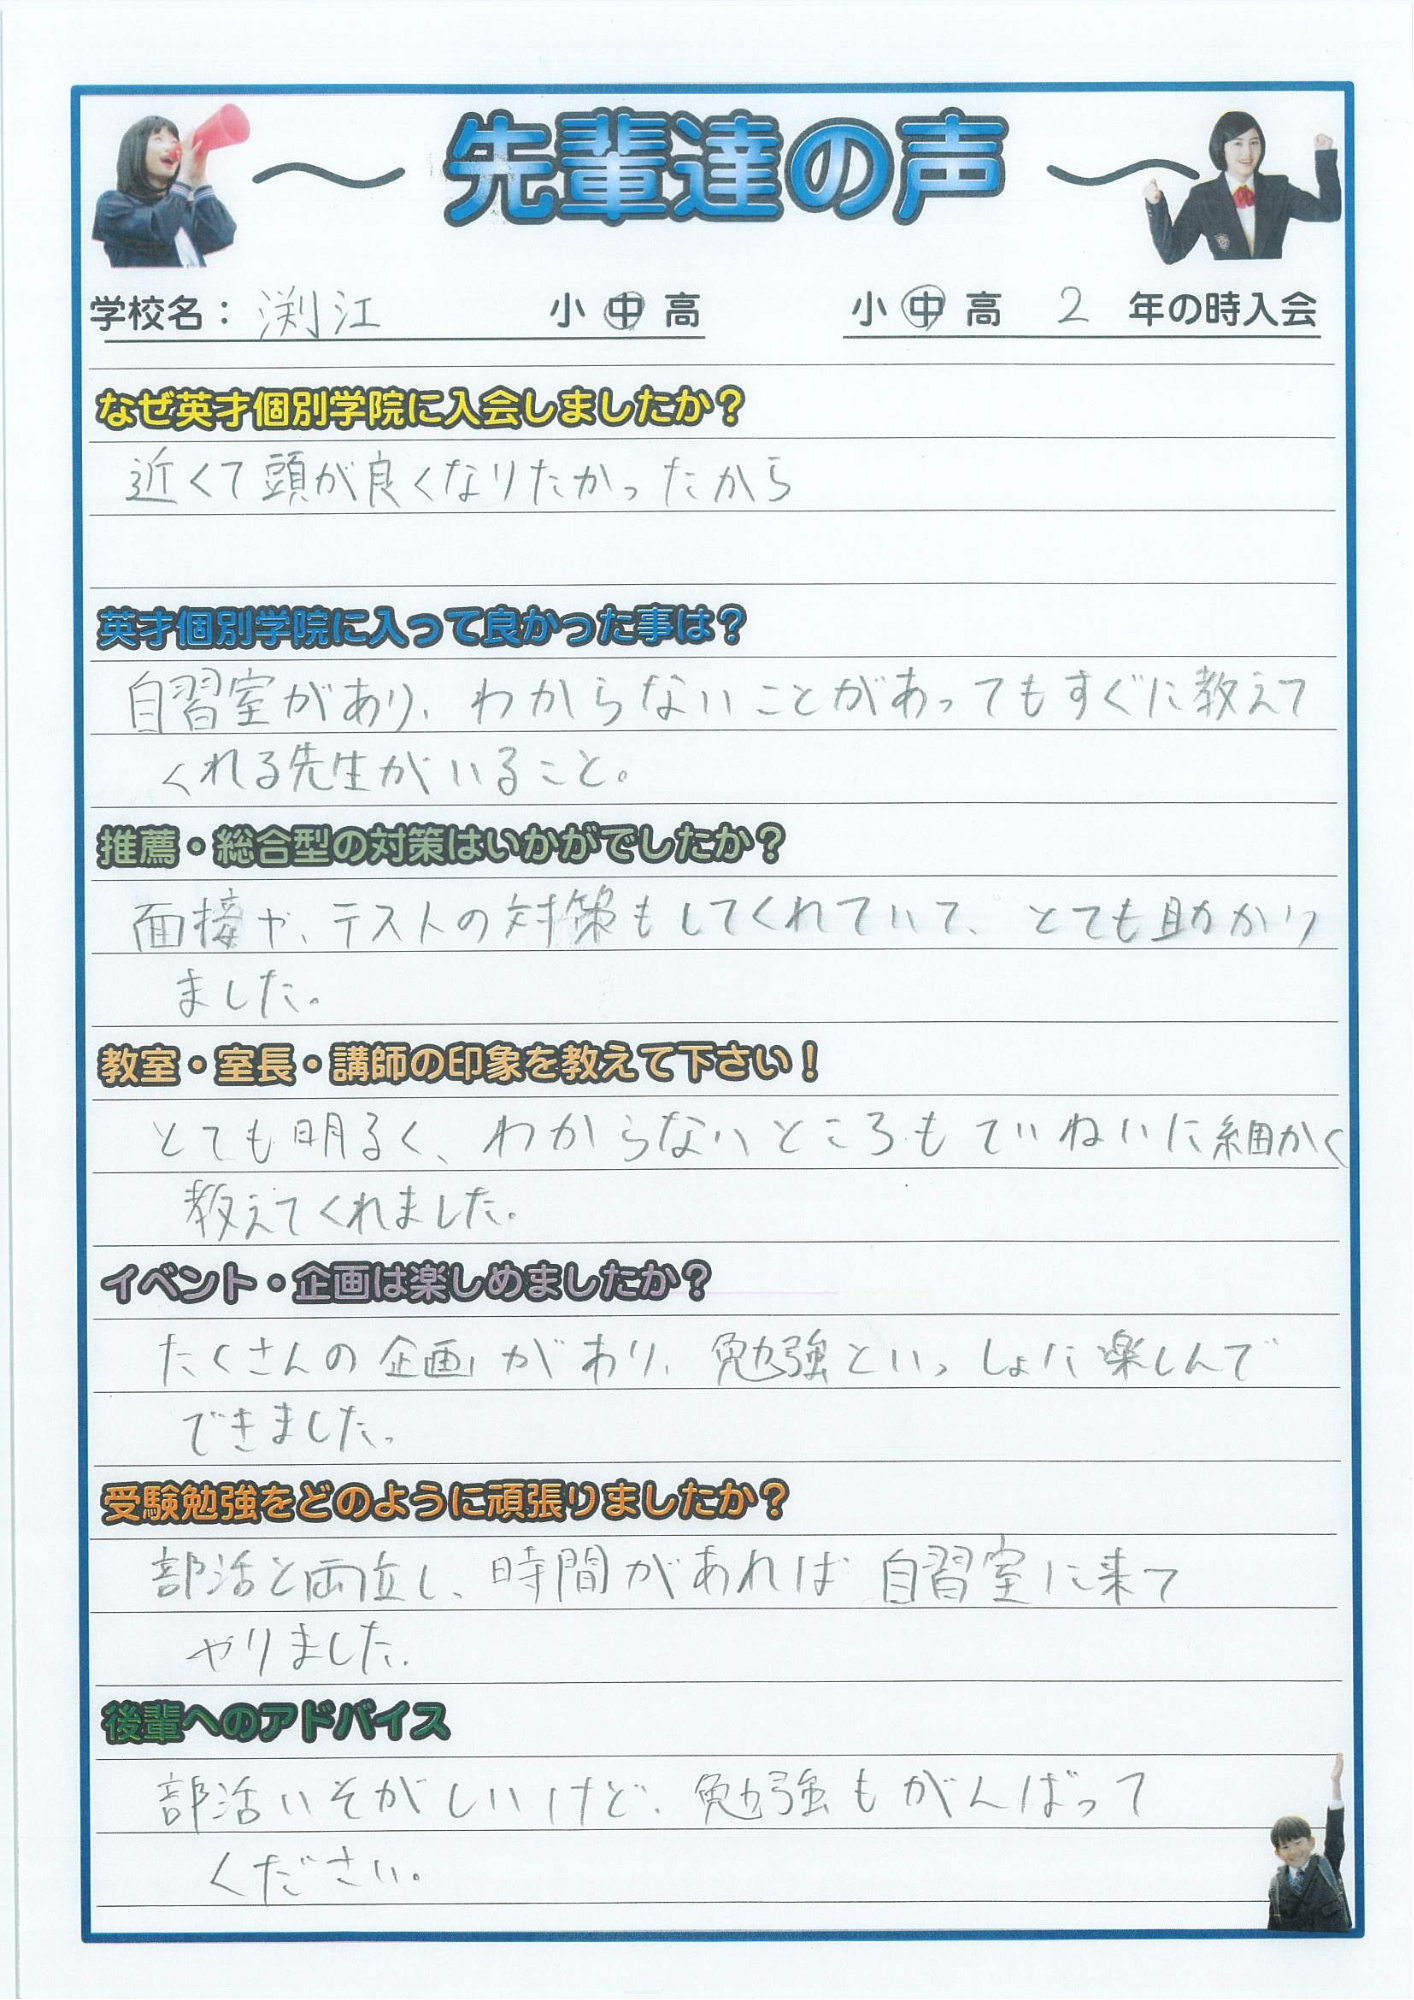 ～ 先輩達の声 ～
学校名： 渕江 小 中 高 小 中 高 2 年の時入会
なぜ英才個別学院に入会しましたか？
近くて頭が良くなりたかったから
英才個別学院に入って良かった事は？
自習室があり、わからないことがあってもすぐに教えて
くれる先生がいること。
推薦・総合型の対策はいかがでしたか？
面接や、テストの対策もしてくれていて、とても助かり
ました。
教室・室長・講師の印象を教えて下さい！
とても明るく、わからないところもていねいに細かく
教えてくれました。
イベント・企画は楽しめましたか？
たくさんの企画があり、勉強といっしょに楽しんで
できました。
受験勉強をどのように頑張りましたか？
部活と両立し、時間があれば自習室に来て
やりました。
後輩へのアドバイス
部活いそがしいけど、勉強もがんばって
ください。